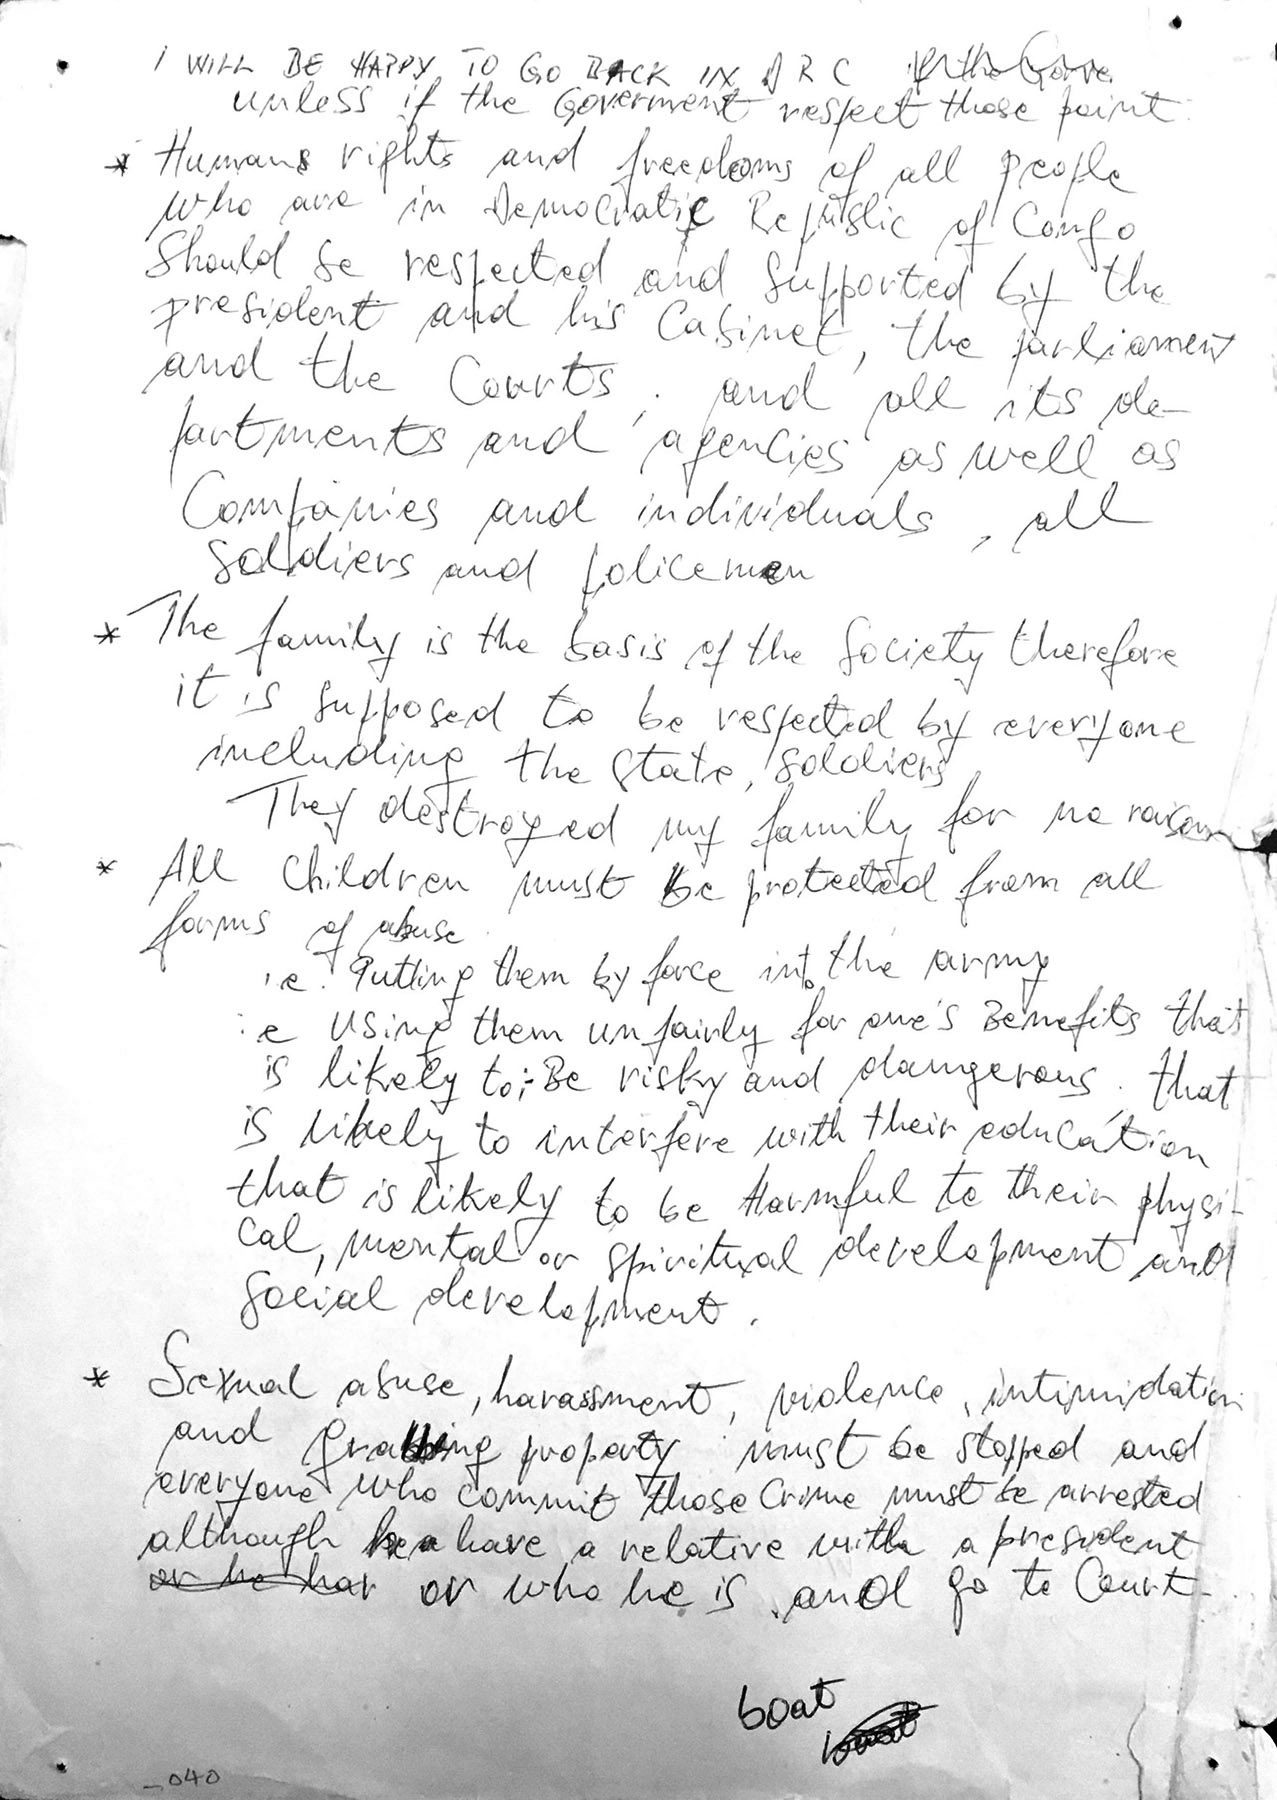 I WILL BE HAPPY TO GO BACK IN DRC if the Gove
unless if the Goverment respect those point
* Humans rights and freedoms of all people
who are in Democratic Republic of Congo
Should be respected and supported by the
president and his Cabinet, the parliament
and the Courts, and all its de-
partments and agencies as well as
Companies and individuals, all
Soldiers and policemen
* The family is the basis of the Society therefore
it is supposed to be respected by everyone
including the State, Soldiers
They destroyed my family for no raison
* All Children must be protected from all
forms of abuse
i.e. Putting them by force into the army
i.e Using them unfairly for one's Benefits that
is likely to:- Be risky and dangerous. that
is likely to interfere with their education
that is likely to be Harmful to their physi-
cal, mental or spiritual development and
Social development.
* Sexual abuse, harassment, violence, intimidation
and grabbing property must be stopped and
everyone who commit those Crime must be arrested
although he have a relative with a president
or he har or who he is and go to Court-
boat
boat
_040